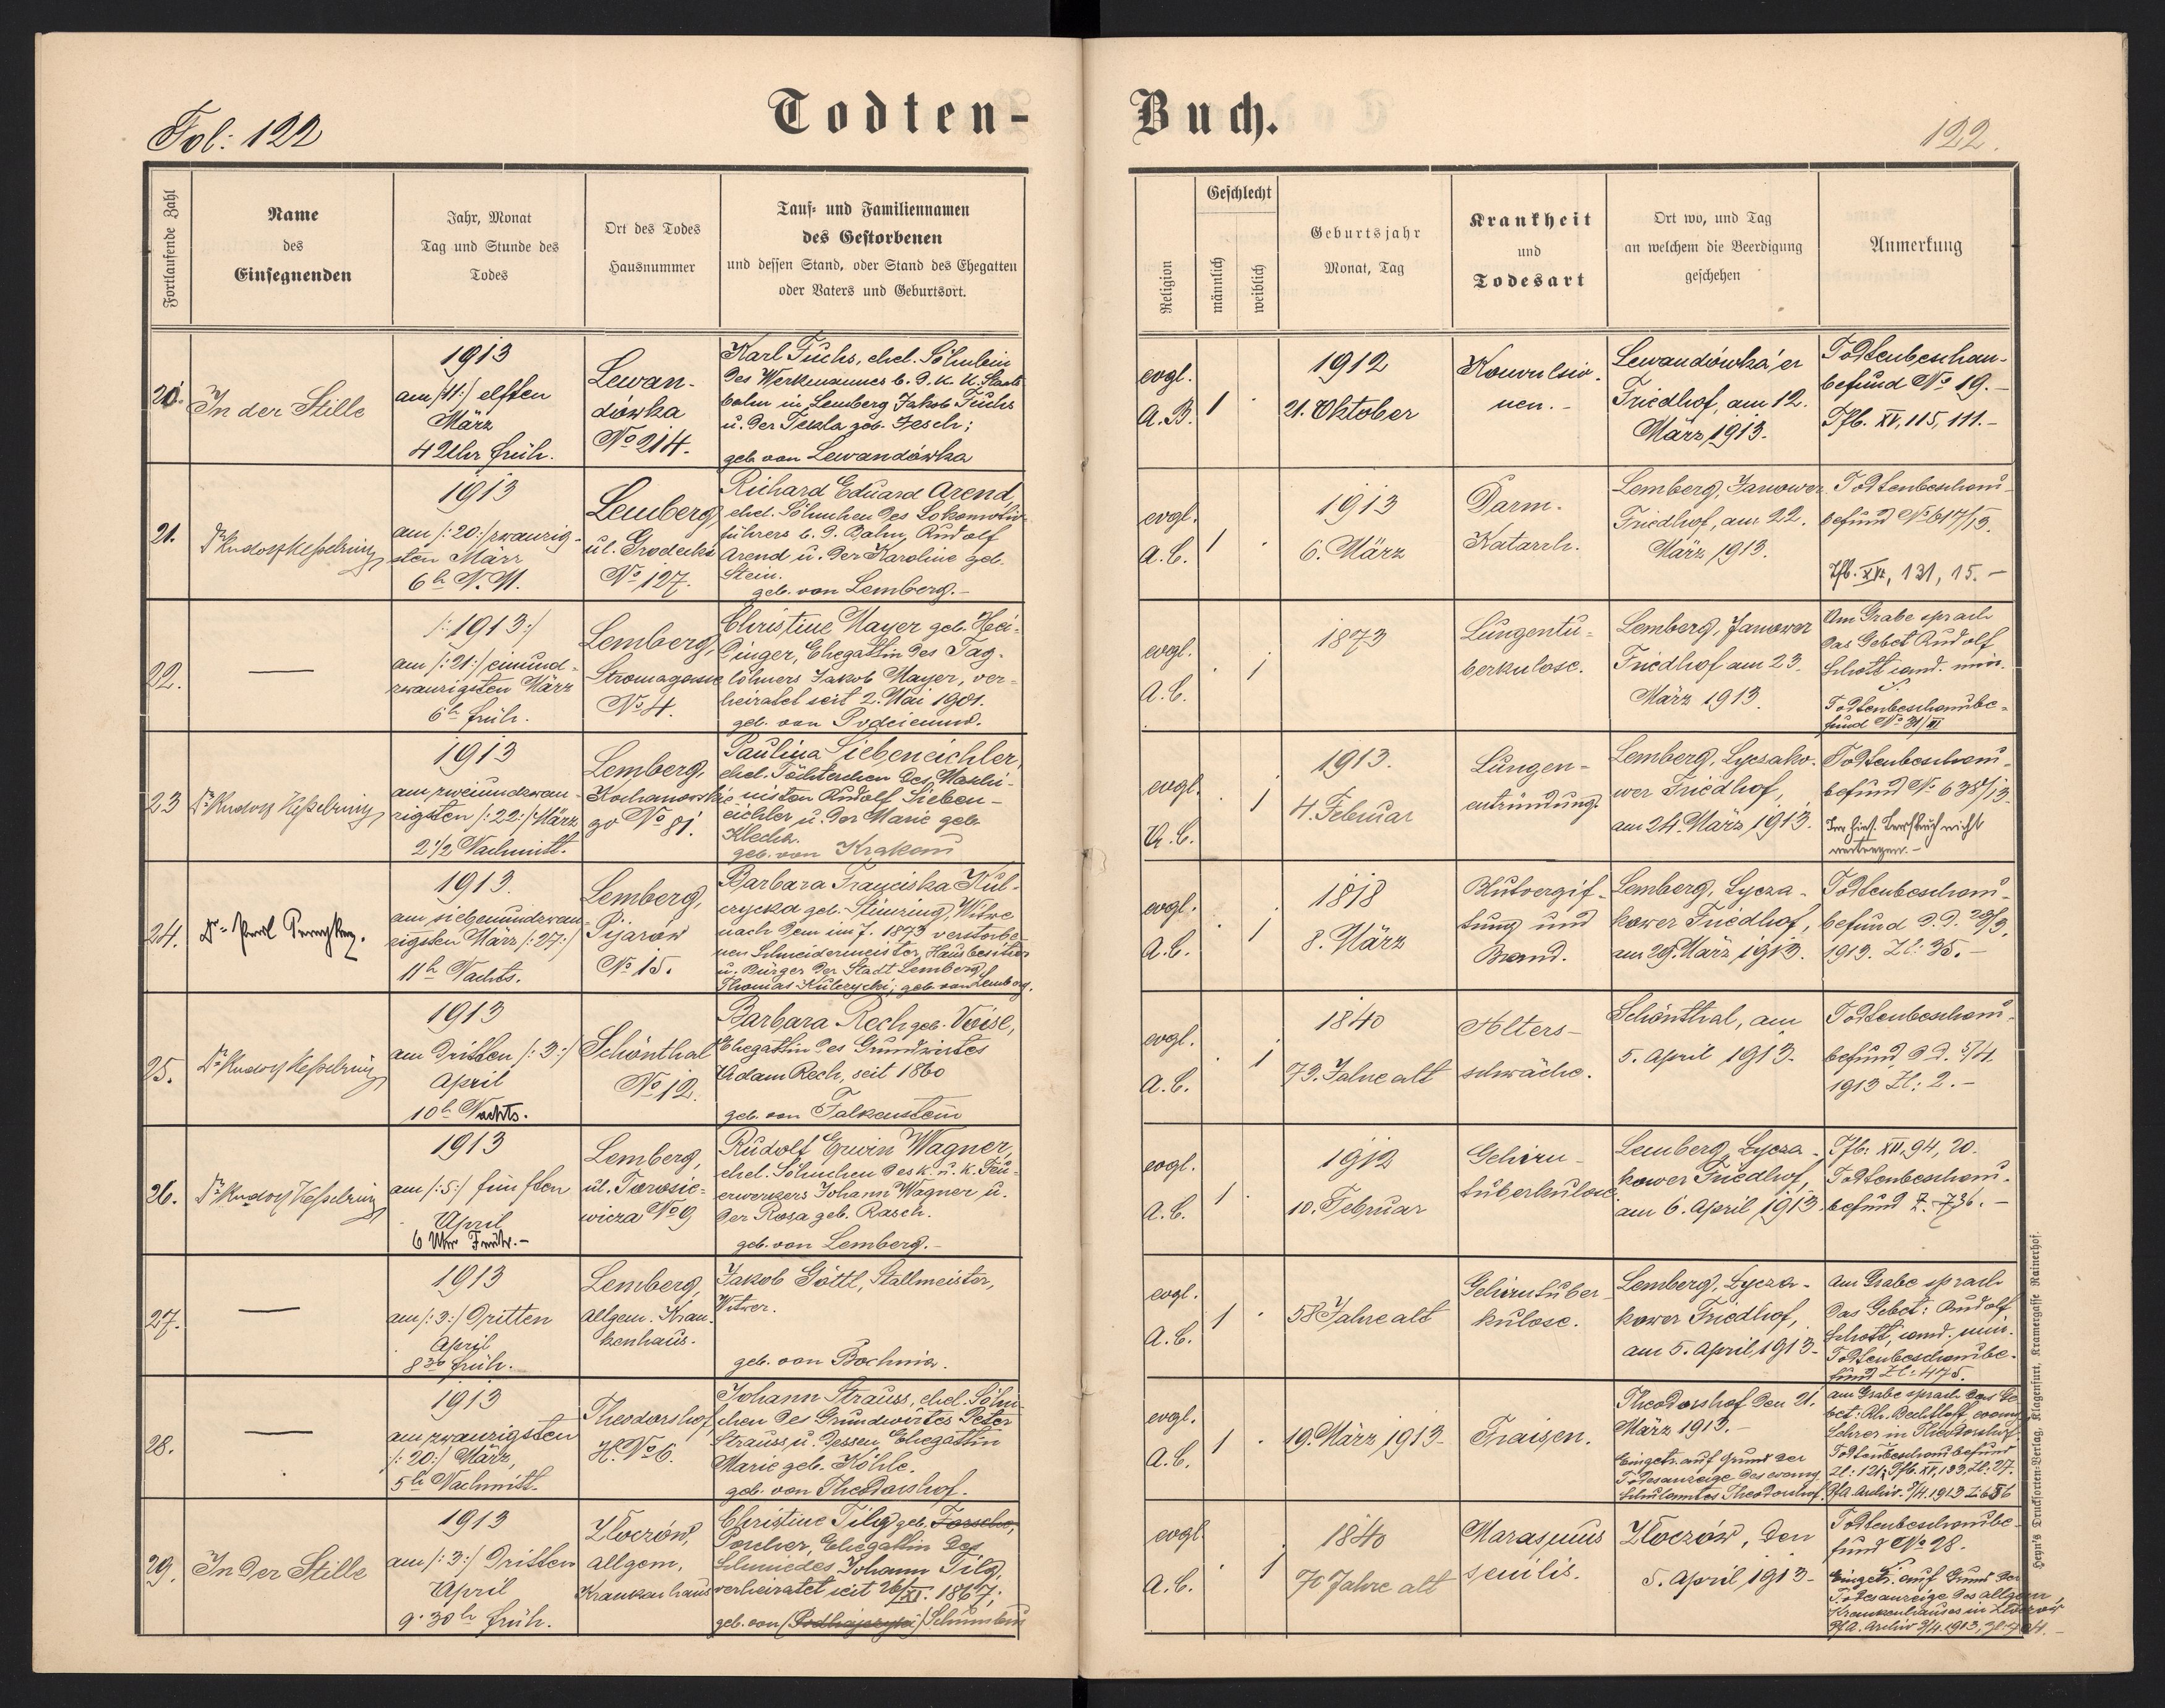 Todten-Buch.
Fol: 122
122.
Fortlaufende Zahl
Name
des
Einsegnenden
Jahr, Monat
Tag und Stunde des
Todes
Ort des Todes
Hausnummer
Tauf- und Familiennamen
des Gestorbenen
und dessen Stand, oder Stand des Ehegatten
oder Vaters und Geburtsort.
Religion
Geschlecht
männlich
weiblich
Geburtsjahr
Monat, Tag
Krankheit
und
Todesart
Ort wo, und Tag
an welchem die Beerdigung
geschehen
Anmerkung
20.
In der Stille
1913
am /:11:/ elften
März
4 Uhr früh.
Lewan-
dówka
No 214.
Karl Fuchs, ehel. Söhnlein
des Werkmannes b. d. k. k. Staats
bahn in Lemberg Jakob Fuchs
u. der Tekla geb. Fesch;
geb. von Lewandówka
evgl.
A.B.
1 .
1912
21. Oktober
Konvulsio-
nen. -
Lewandówka'er
Friedhof, am 12.
März 1913.
Todtenbeschau-
befund No 19. -
Tfb. XV, 115, 111. -
21.
Dr Rudolf Kesselring
1913
am /:20:/ zwanzig-
sten März
6h N. M.
Lemberg
ul. Grodecka
No 127.
Richard Eduard Arend,
ehel. Söhnchen des Lokomotiv-
führers b. d. Bahn, Rudolf
Arend u. der Karoline geb.
Stein.
geb. von Lemberg. -
evgl.
A.C.
1 .
1913
6. März
Darm-
Katarrh.
Lemberg, Janower
Friedhof, am 22.
März 1913.
Todtenbeschau-
befund No 617/13.
Tfb. XVI, 131, 15. -
22.
—
/:1913:/
am /:21:/ einund-
zwanzigsten März
6h früh.
Lemberg,
Stromagasse
No 4.
Christine Mayer geb. Hei-
dinger, Ehegattin des Tag-
löhners Jakob Mayer, ver-
heiratet seit 2. Mai 1901.
geb. von
evgl.
A.C.
. 1
1873
Lungentu-
berkulose.
Lemberg, Janower
Friedhof am 23.
März 1913.
Am Grabe sprach
das Gebet Rudolf
Schott cand. min.
Todtenbeschaube-
fund No 31/III
23
Dr Rudolf Kesselring
1913
am zweiundzwan-
zigsten /:22:/ März
2 1/2 Nachmitt.
Lemberg,
Kochanowskie
go No 81.
Paulina Siebeneichler,
ehel. Töchterchen des Maschi-
nisten Rudolf Sieben-
eichler u. der Marie geb.
Klech.
geb. von Krakau
evgl.
A.C.
. 1
1913.
4. Februar
Lungen-
entzündung.
Lemberg, Lyczako-
wer Friedhof,
am 24. März 1913.
Todtenbeschau-
befund No 638/13.
24.
Dr
1913.
am siebenundzwan-
zigsten März /:27:/
11h Nachts.
Lemberg,
Pijarów
No 15.
Barbara Franciska Kul-
czycka geb. Stiuzing, Witwe
nach dem im J. 1873 verstorbe-
nen Schneidermeister, Hausbesitzer
u. Bürger der Stadt Lemberg
Thomas Kulczycki; geb. von Lemberg.
evgl.
A.C.
. 1
1818
8. März
Blutvergif-
tung und
Brand.
Lemberg, Lycza-
kower Friedhof,
am 29. März 1913.
Todtenbeschau-
befund d.d. 29/3.
1913. Zl: 35. -
25.
Dr Rudolf Kesselring
1913
am dritten /:3:/
April
10h Nachts.
Schönthal
No 12.
Barbara Rech geb. Voise,
Ehegattin des Grundwirtes
Adam Rech, seit 1860
geb. von Falkenstein
evgl.
A.C.
. 1
1840
73. Jahre alt
Alters-
schwäche.
Schönthal, am
5. April 1913.
Todtenbeschau-
befund d.d. 5/4.
1913 Zl: 2. -
26.
Dr Rudolf Kesselring
1913
am /:5:/ fünften
April
6 Uhr Früh. -
Lemberg,
ul. Tarosie-
wicza No 9
Rudolf Erwin Wagner,
ehel. Söhnchen des k. u. k. Feu-
erwerkers Johann Wagner u.
der Rosa geb. Rasch.
geb. von Lemberg. -
evgl.
A.C.
1 .
1912
10. Februar
Gehirn-
tuberkulose.
Lemberg, Lycza-
kower Friedhof,
am 6. April 1913
Tfb: XVI, 94, 20.
Todtenbeschau-
befund Z. 736. -
27.
—
1913
am /:3:/ Dritten
April
8 30 früh.
Lemberg,
Allgem. Kran-
kenhaus.
Jakob Göttl, Stallmeister,
Witwer.
geb. von Bochnia.
evgl.
A.C.
1 .
58 Jahre alt
Gehirntuber-
kulose.
Lemberg, Lycza-
kower Friedhof,
am 5. April, 1913-
Am Grabe sprach
das Gebet: Rudolf
Schott, cand. min.
Todtenbeschaube-
fund Zl: 475.
28.
—
1913
am zwanzigsten
/:20:/ März,
5h Nachmitt.
Theodorshof
H. No 6.
Johann Strauss, ehel. Söhn-
chen des Grundwirtes Peter
Strauss u. dessen Ehegattin
Marie geb. Köhle.
geb. von Theodorshof.
evgl.
A.C.
1 .
19. März 1913-
Fraisen.
Theodorshof den 21.
März 1913. -
Eingetr. auf Grund der
Todesanzeige des evang.
Schulamtes Theodorshof.
Am Grabe sprach das Ge-
bet: Rh. Bechtloff evang.
Lehrer in Theodorshof.
Todtenbeschaubefund
Zl: 121; Tfb. XV, 133, Zl: 27.
29.
In der Stille
1913
am /:3:/ Dritten
April
9.30h früh.
Zloczów,
allgem.
Krankenhaus
Christine Tilg geb.
Porcher, Ehegattin des
Schmiedes Johann Tilg,
verheiratet seit 26/XI. 1867;
geb. von
evgl
A.C.
. 1
1840
Jahre alt
Marasmus
senilis.
Zloczów, den
5. April 1913-
Todtenbeschaube-
fund No 28.
Eingetr. auf Grund der
Todesanzeige des allgem.
Krankenhauses in Zloczów
Heyn's Drucksorten-Verlag, Klagenfurt, Kramergasse Rainerhof.